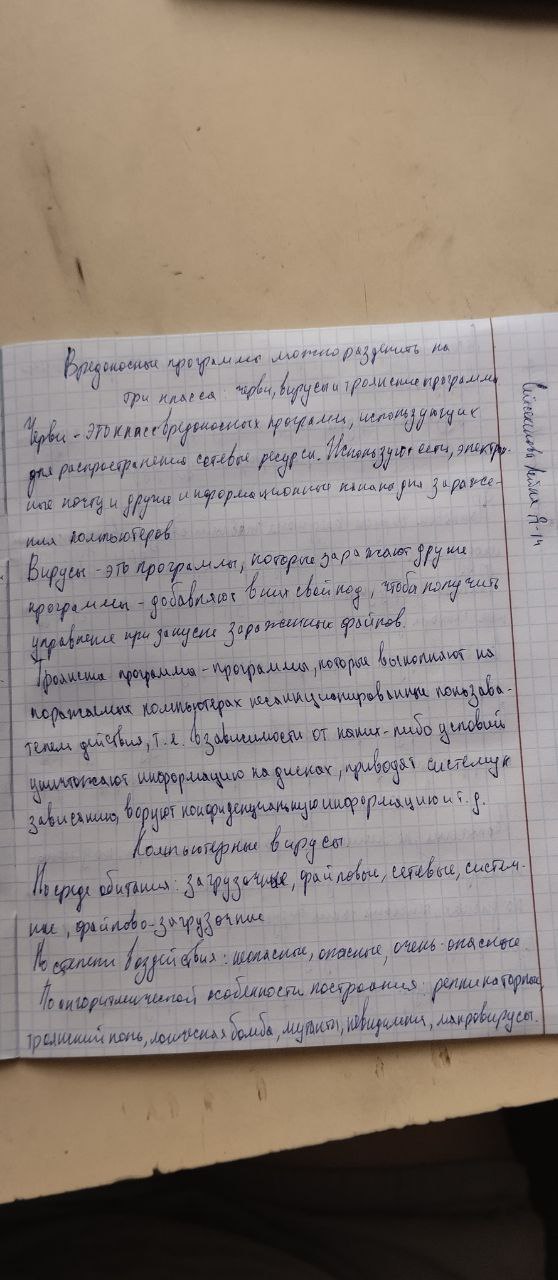 Вредоносные программы можно разделить на
три класса: черви, вирусы и троянские программы
Черви - это класс вредоносных программ, использующих
для распространения сетевые ресурсы. Используют сети, электрон-
ные почту и другие информационные каналы для зараже-
ния компьютеров
Вирусы - это программы, которые заражают другие
программы - добавляют в них свой код, чтобы получить
управление при запуске зараженных файлов.
Троянские программы - программы, которые выполняют на
поражаемых компьютерах несанкционированные пользова-
телем действия, т.е. в зависимости от каких-либо условий
уничтожают информацию на дисках, приводят систему к
зависанию, воруют конфиденциальную информацию и т.д.
Компьютерные вирусы
По среде обитания: загрузочные, файловые, сетевые, систем-
ные, файлово-загрузочные
По степени воздействия: неопасные, опасные, очень опасные
По алгоритмической особенности построения: репликаторные,
троянский конь, логическая бомба, мутанты, невидимки, макровирусы.
Я-14